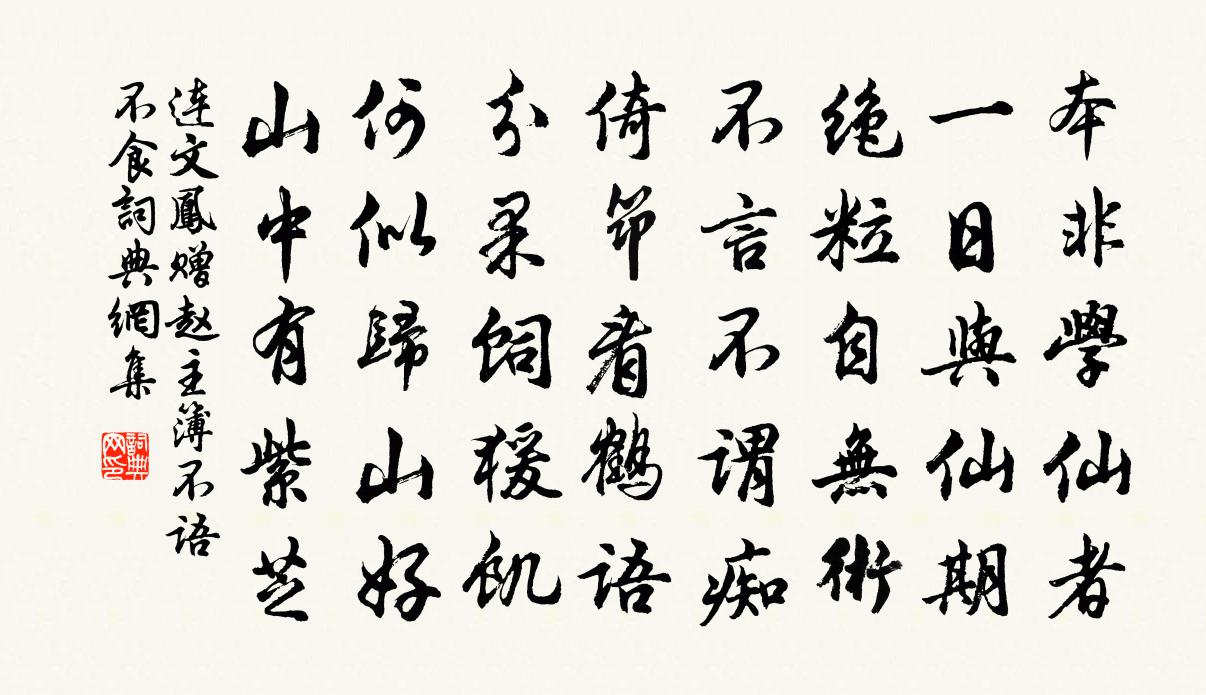 本非學仙者
一日與仙期
絶粒自無術
不言不謂痴
倚筇看鶴語
分果飼猨飢
何似歸山好
山中有紫芝
連文鳳赠赵主簿不語
不食詞典網集
詞典网印